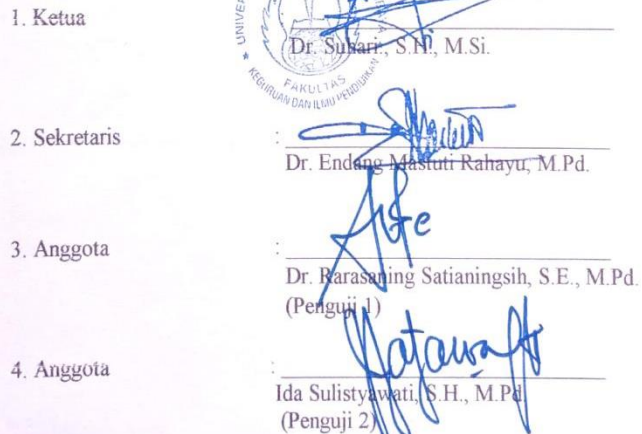 1. Ketua
Dr. Suhari., S.H., M.Si.
FAKULTAS
KEGURUAN DAN ILMU PENDIDIKAN
2. Sekretaris :
Dr. Endang Mastuti Rahayu, M.Pd.
3. Anggota :
Dr. Rarasaning Satianingsih, S.E., M.Pd.
(Penguji 1)
4. Anggota :
Ida Sulistyawati, S.H., M.Pd.
(Penguji 2)